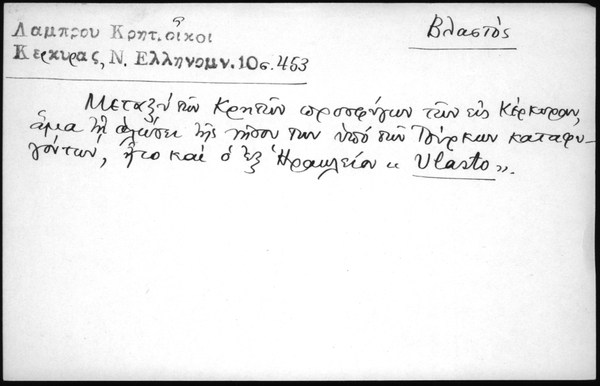 Λαμπρου Κρητ. οἶκοι
Βλαστὸς
Κερκυρας, Ν. Ελληνομν. 10 σ. 453
Μεταξὺ τῶν Κρητῶν προσφύγων τῶν εἰς Κέρκυραν,
ἅμα τῇ ἁλώσει τῆς νήσου των ὑπὸ τῶν Τούρκων καταφυ-
γόντων, ἦτο καὶ ὁ ἐξ Ἡρακλείου « Vlasto ».